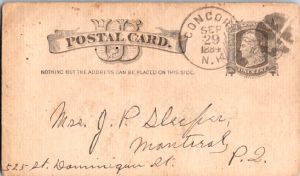 US
POSTAL CARD.
NOTHING BUT THE ADDRESS CAN BE PLACED ON THIS SIDE.
CONCORD
SEP
29
1884
N.H.
ONE CENT
Mrs. J. P. Sleeper,
Montreal
P.Q.
525 St. Dominique St.